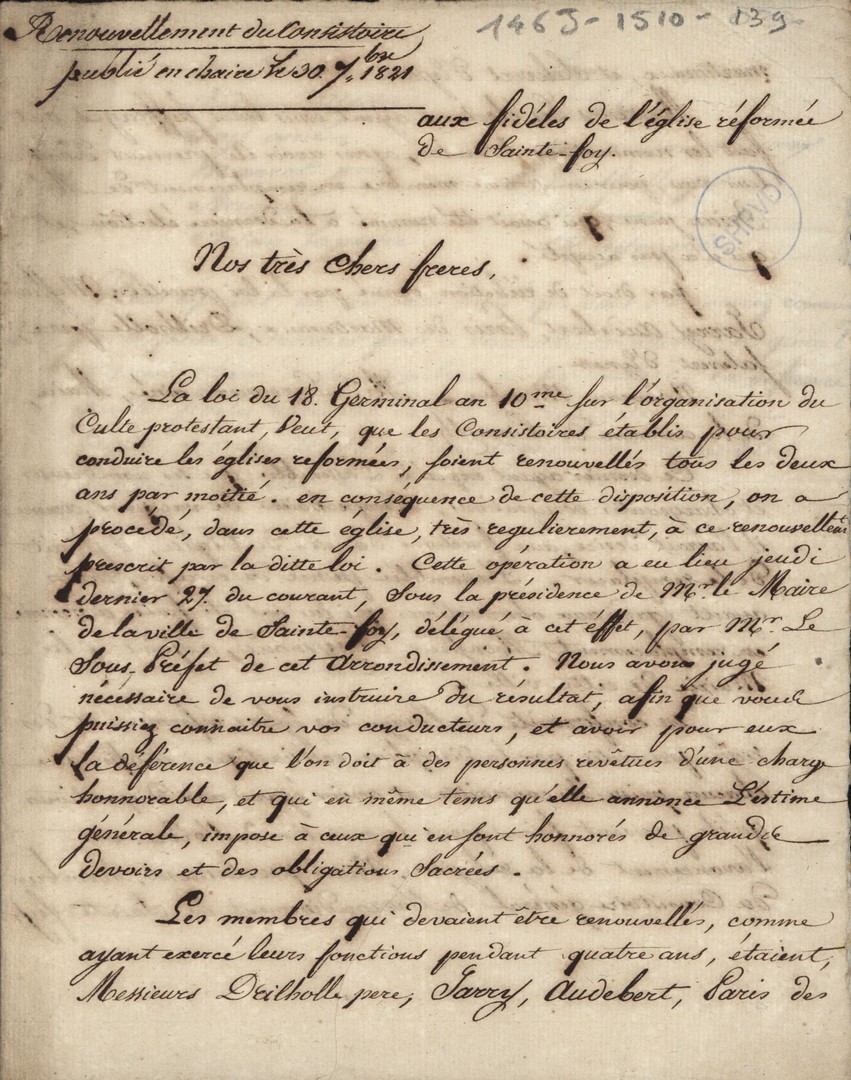 Renouvellement du Consistoire
146J-1510-139
publié en chaire le 30. 7.bre 1821
aux fidéles de l'église réformée
de Sainte-foy.
SHPVD
Nos très chers freres,
La loi du 18. Germinal an 10me. sur l'organisation du
Culte protestant, Veut, que les Consistoires établis pour
conduire les églises reformées, soient renouvellés tous les deux
ans par moitié. en conséquence de cette disposition, on a
procédé, dans cette église, très regulierement, à ce renouvellemt
prescrit par la ditte loi. Cette opération a eu lieu jeudi
dernier 27. du courant, sous la présidence de Mr. le Maire
de la ville de Sainte-foy, délégué à cet éffet, par Mr. Le
Sous-Préfet de cet Arrondissement. Nous avons jugé
nécessaire de vous instruire du résultat, afin que vous
puissiez connaitre vos conducteurs, et avoir pour eux
la déférence que l'on doit à des personnes revêtues d'une charge
honnorable, et qui en même tems qu'elle annonce L'estime
générale, impose à ceux qui en sont honnorés de grands
devoirs et des obligations Sacrées.
Les membres qui devaient être renouvellés, comme
ayant exercé leurs fonctions pendant quatre ans, étaient,
Messieurs Drilholle pere, Jarry, Audebert, Paris des